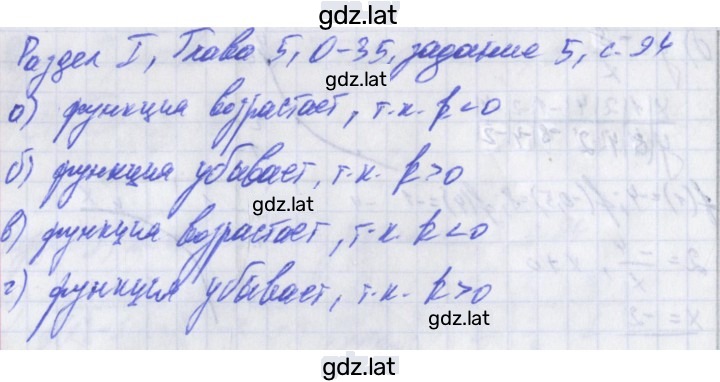 gdz.lat
Раздел I, Глава 5, О-35, задание 5, с. 94
gdz.lat
а) функция возрастает, т.к. k<0
б) функция убывает, т.к. k>0
gdz.lat
в) функция возрастает, т.к. k<0
г) функция убывает, т.к. k>0
gdz.lat
gdz.lat